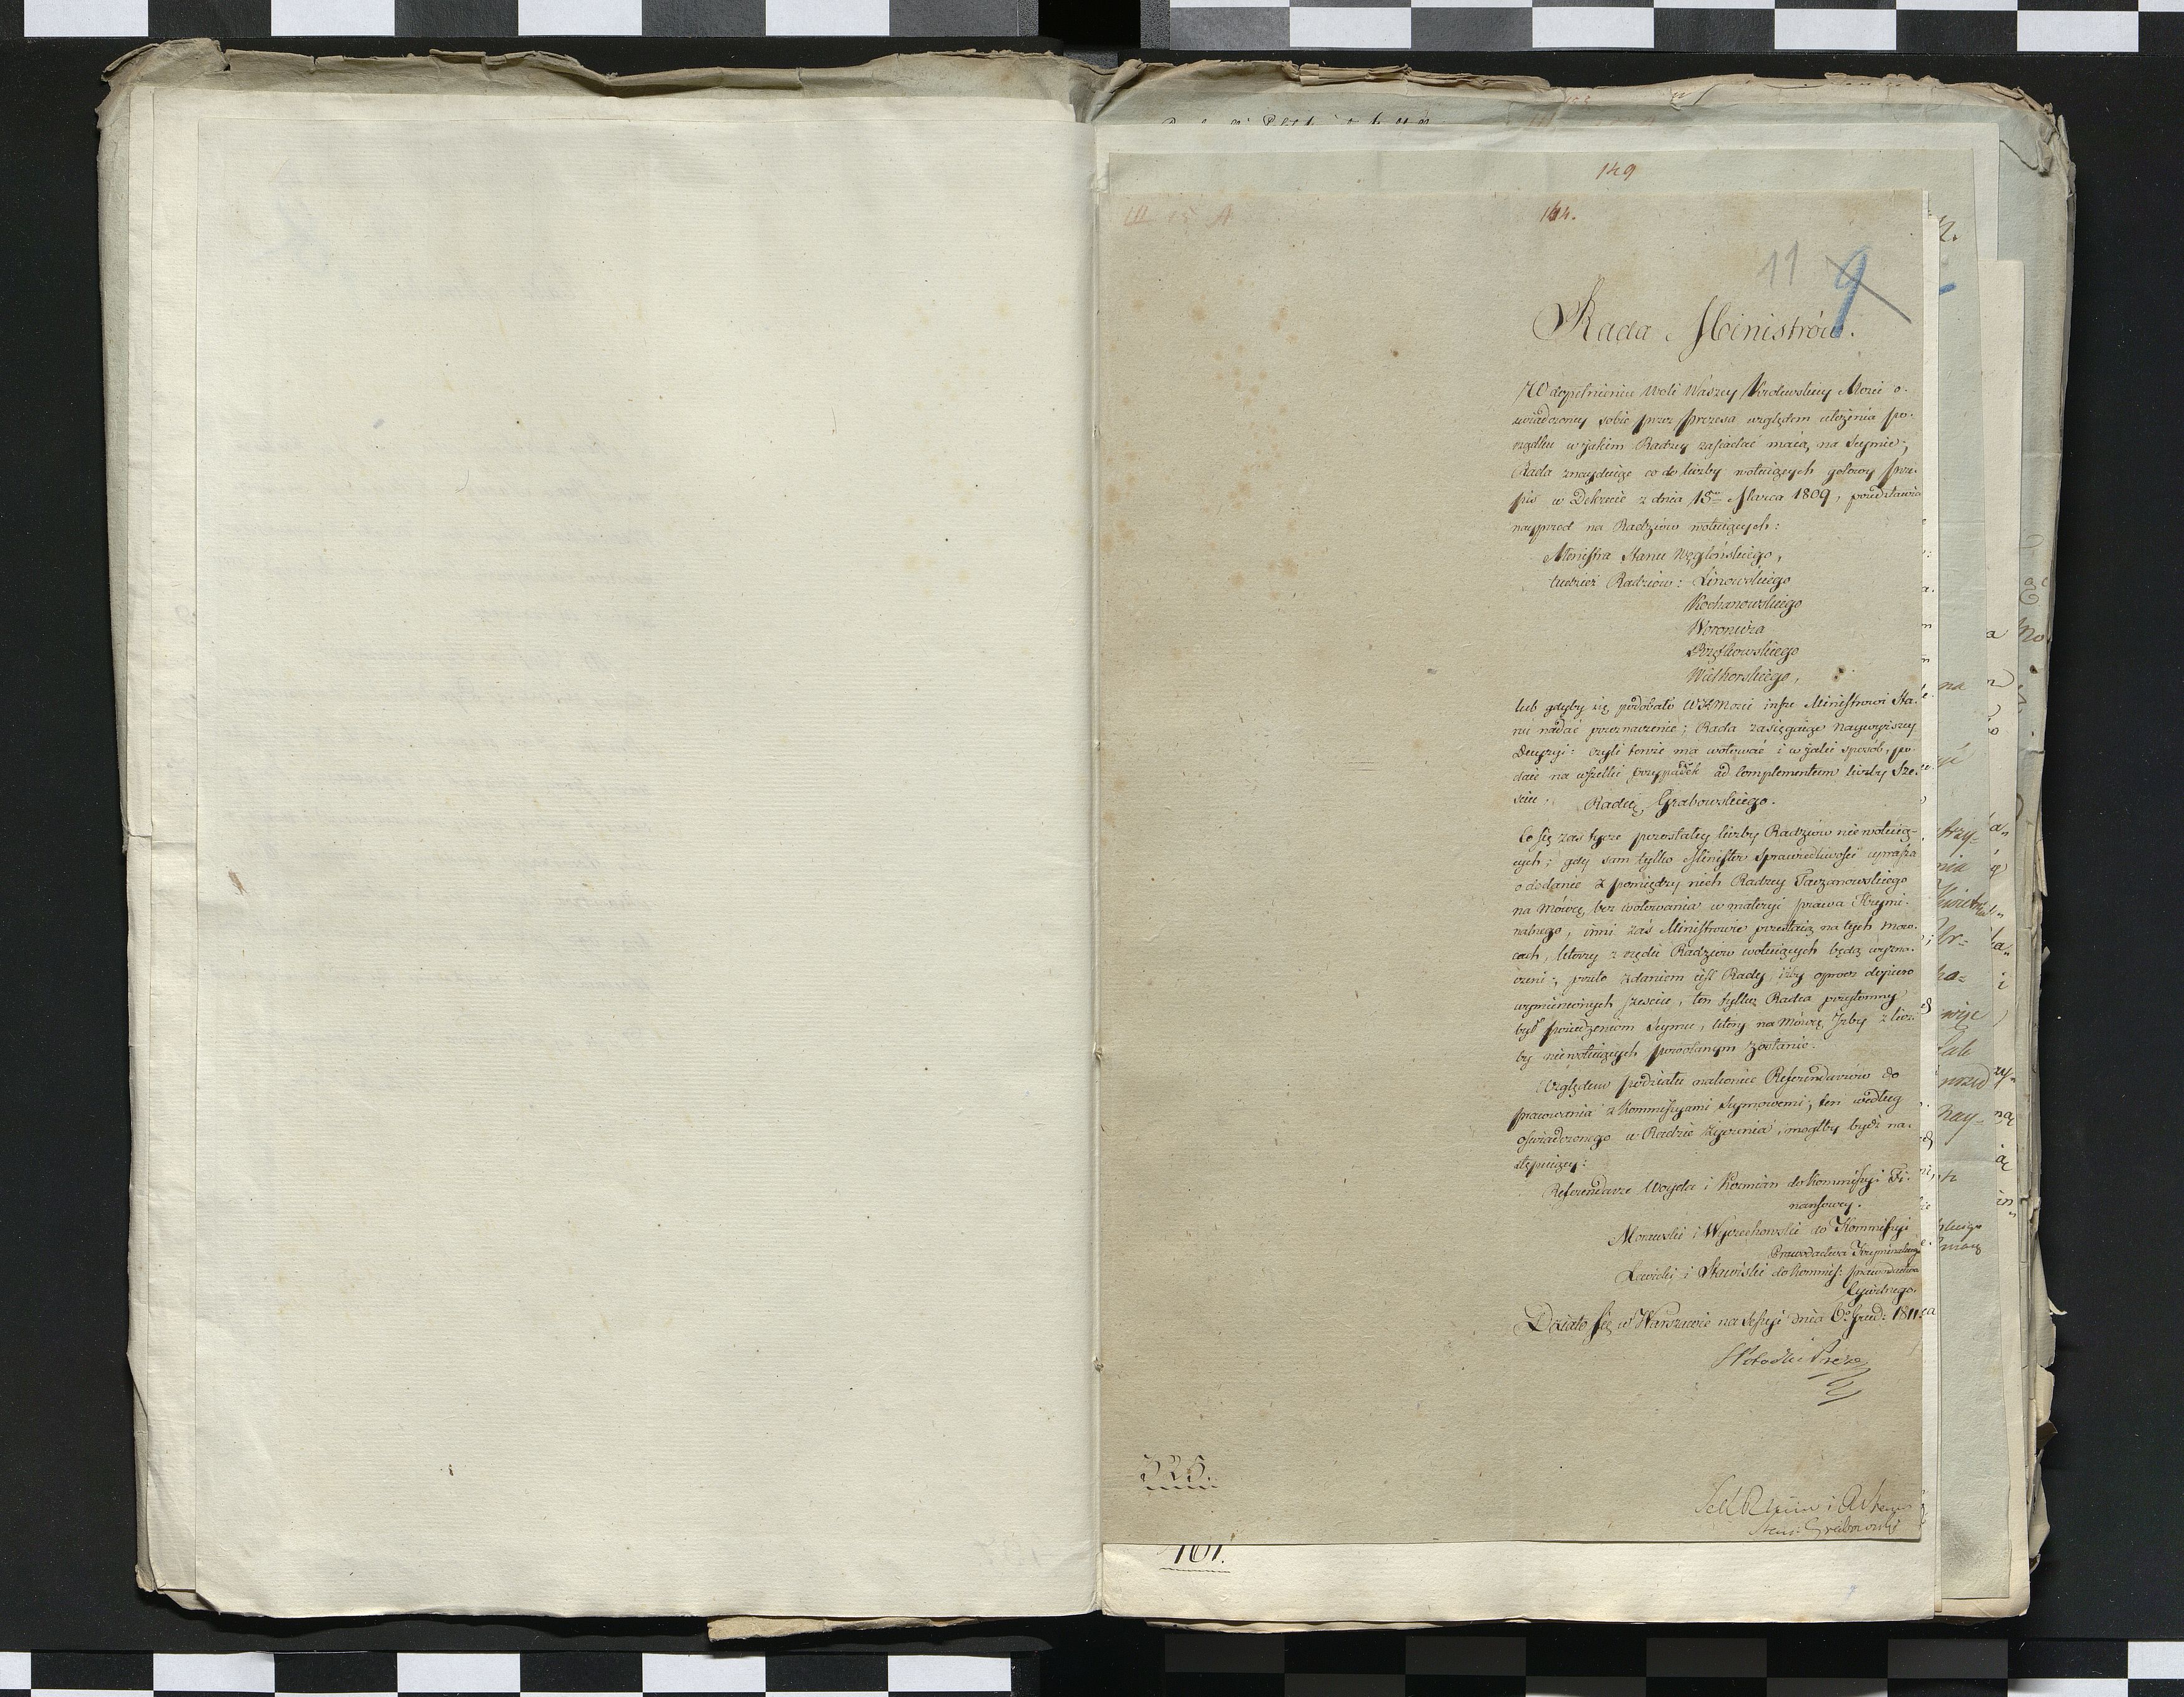 149
144.
11 9
Rada Ministrów.
W dopełnieniu Woli Waszey Krolewskiey Mości o-
swiadczoney sobie przez Prezesa względem ułożenia po-
rządku w jakim Radzcy zasiadać maią na Seymie;
Rada znayduiąc co do liczby wotuiących gotowy prze-
pis w Dekrecie z dnia 15go Marca 1809, przedstawia
nayprzod na Radzców wotuiących:
Ministra Stanu Węgleńskiego,
tudzież Radzców: Linowskiego
Kochanowskiego
Woronicza
Wielhorskiego,
lub gdyby się podobało WKMości insze Ministrowi Sta-
nu nadać przeznaczenie; Rada zasięgaiąc naywyższey
Decyzyi: czyli tenże ma wotować i w jaki sposób, po-
daie na wszelki przypadek ad complementum liczby sze-
sciu. Radcę Grabowskiego.
Co się zaś tycze pozostałey liczby Radzców nie wotuią-
cych; gdy sam tylko Minister Sprawiedliwości uprasza
o dodanie z pomiędzy nich Radzcy Taczanowskiego
na Mówcę, bez wotowania w materyi prawa Krymi-
nalnego, inni zaś Ministrowie przestaią na tych mów-
cach, którzy z rzędu Radzców wotuiących będą wyzna-
czeni; przeto zdaniem iest Rady, iżby oprocz dopiero
wymienionych sześciu, ten tylko Radca przytomny
był posiedzeniom Seymu, który na Mówcę Izby z licz-
by niewotuiących powołanym zostanie.
Względem podziału nakoniec Referendarzów do
pracowania z Kommissyami Seymowemi, ten według
oświadczonego w Radzie życzenia, mogłby bydź na-
stępuiący:
Referendarze Woyda i Kozmian do Kommissyi Fi-
nansowey.
Morawski i Wyczechowski do Kommissyi
Prawodactwa Kryminalnego
Łewicki i Stawiski do Kommis: prawodactwa
Cywilnego.
Działo się w Warszawie na Sessyi dnia 6o Grud: 1811.
Potocki Preze
325.
Stan: Grabowski
101.